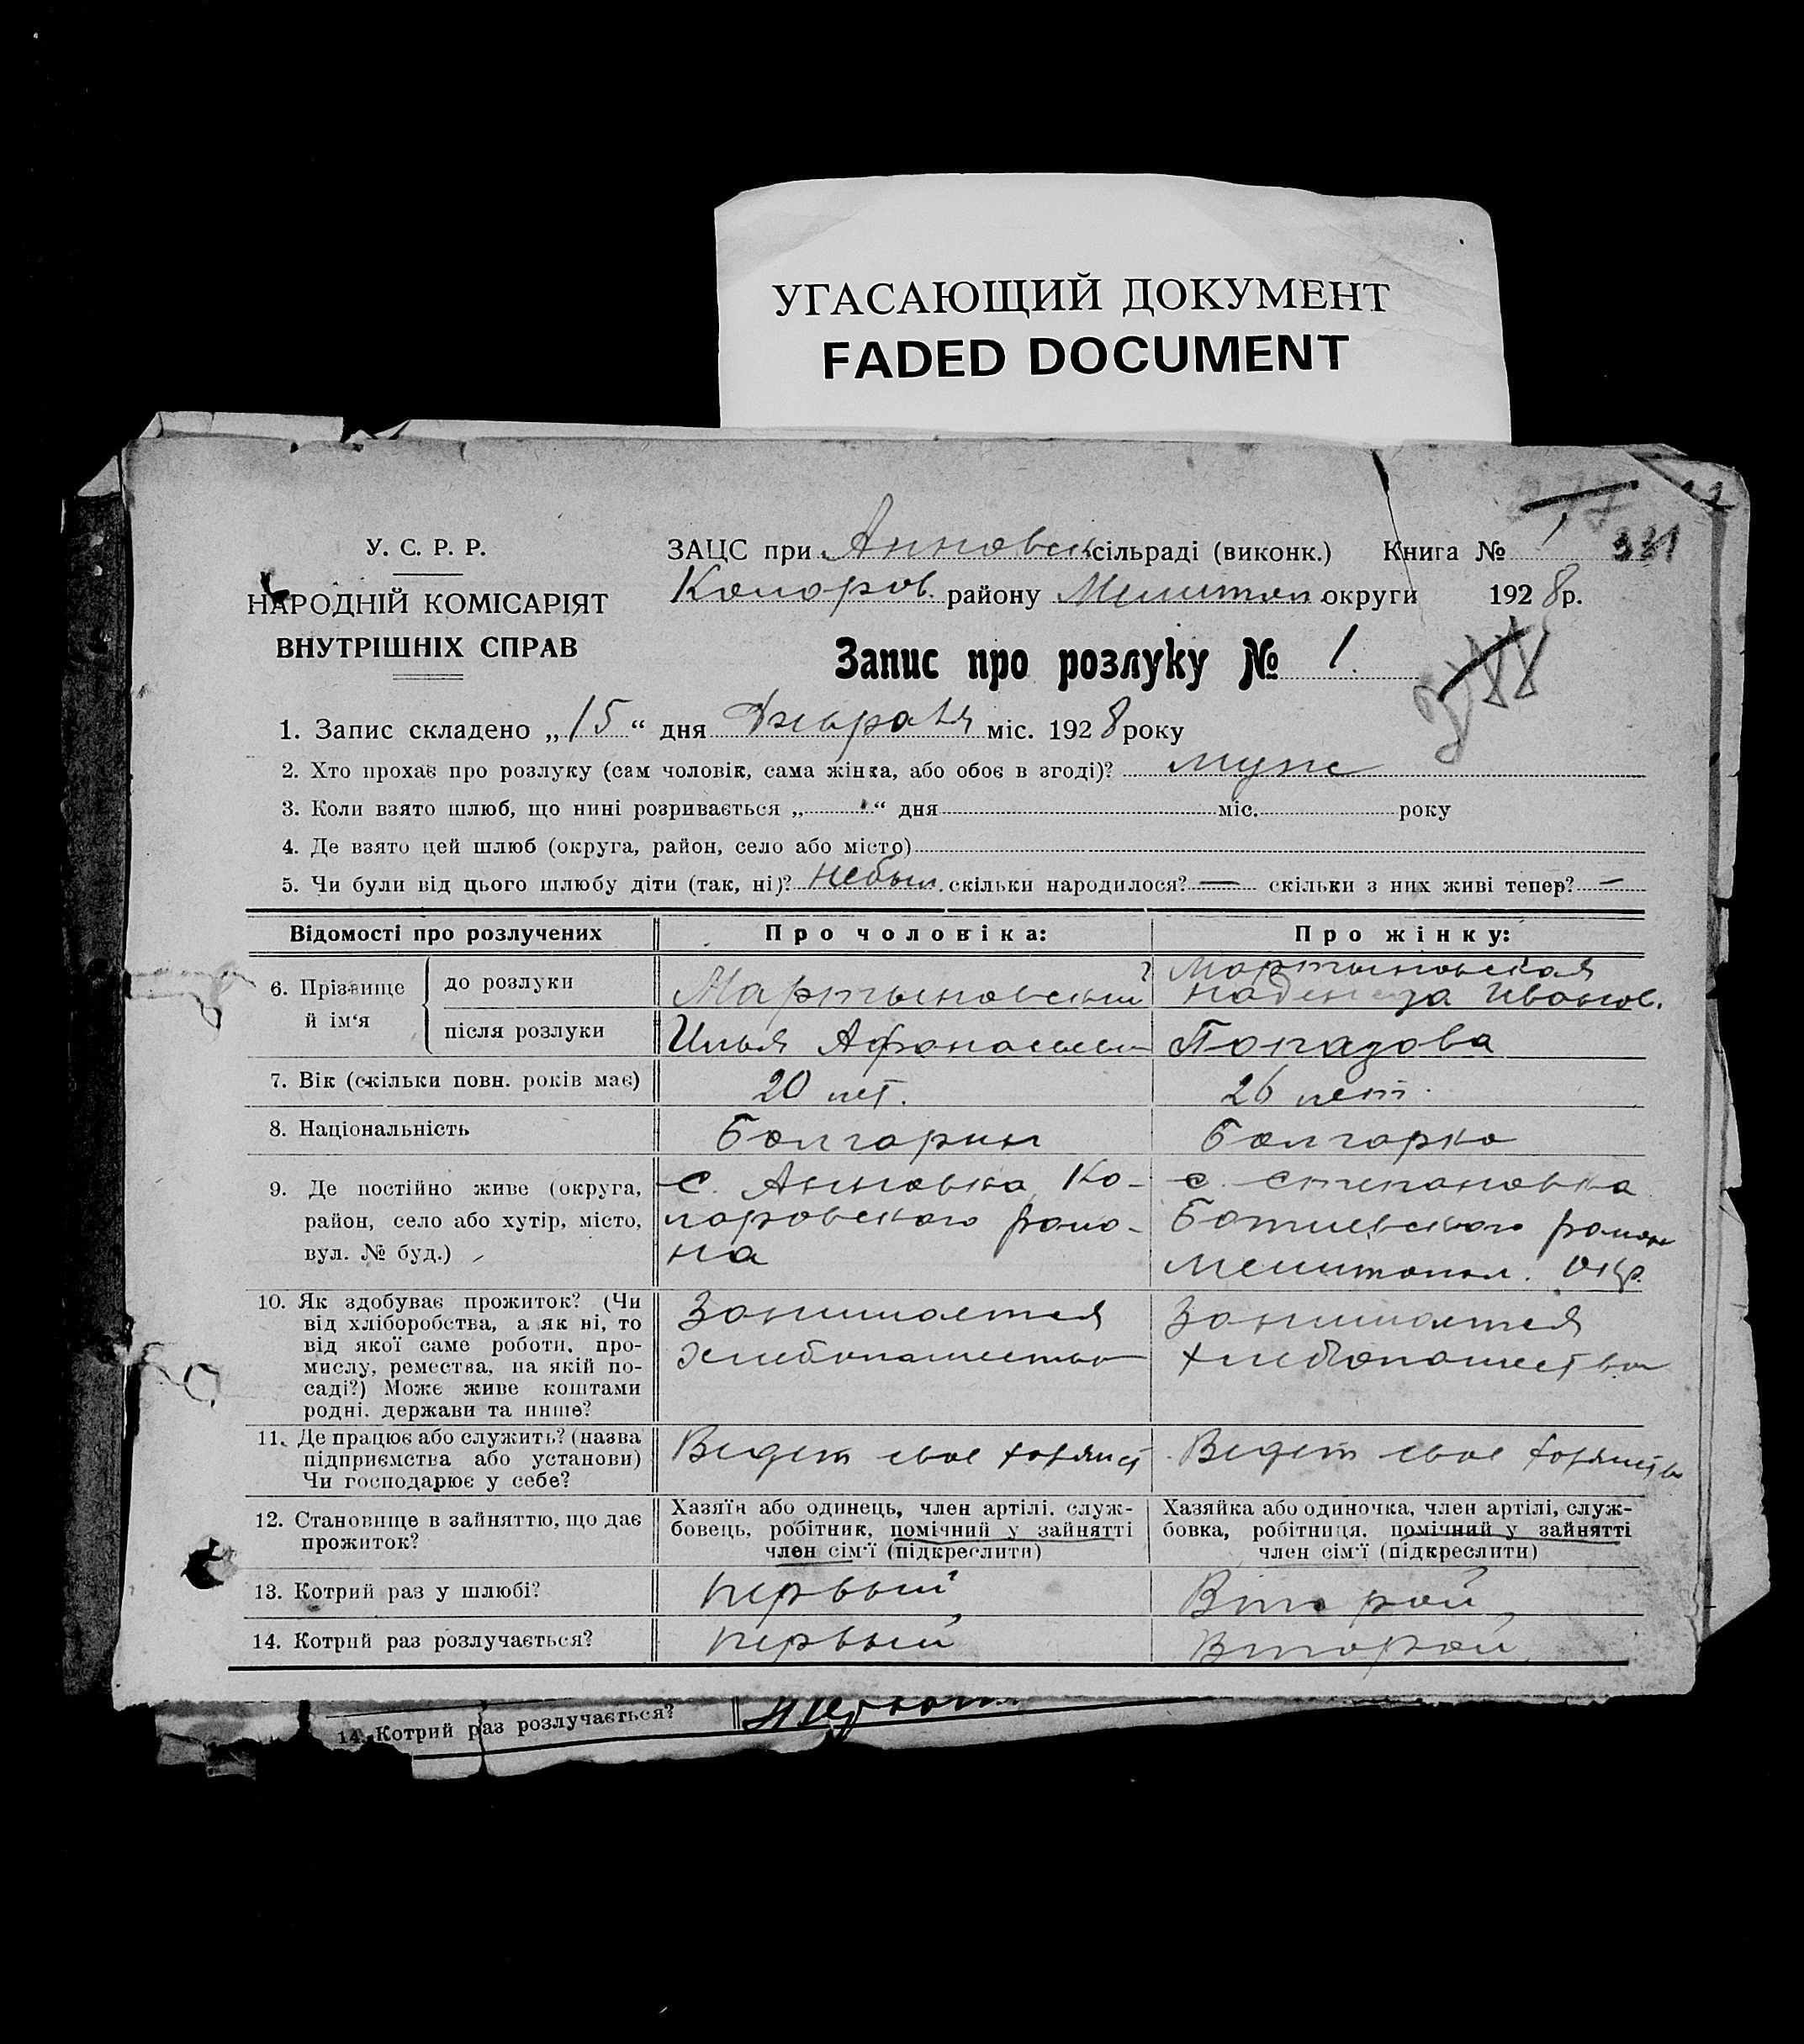 УГАСАЮЩИЙ ДОКУМЕНТ
FADED DOCUMENT
331
У. С. Р. Р.
НАРОДНІЙ КОМІСАРІЯТ
ВНУТРІШНІХ СПРАВ
ЗАЦС при Анновск сільраді (виконк.) Книга № 1
Коларов. району Мелитоп округи 1928 р.
Запис про розлуку № 1.
1. Запис складено „15“ дня Января міс. 1928 року
2. Хто прохає про розлуку (сам чоловік, сама жінка, або обоє в згоді)? муж
3. Коли взято шлюб, що нині розривається „ “ дня міс. року
4. Де взято цей шлюб (округа, район, село або місто)
5. Чи були від цього шлюбу діти (так, ні)? небыл. скільки народилося? — скільки з них живі тепер? —
Відомості про розлучених Про чоловіка: Про жінку:
6. Прізвище й ім'я
до розлуки Мартыновский Мартыновская
Надежда Иванов.
після розлуки Илья Афанасьев Попазова
7. Вік (скільки повн. років має) 20 лет. 26 лет.
8. Національність Болгарин Болгарка
9. Де постійно живе (округа,
район, село або хутір, місто,
вул. № буд.)
с. Анновка Ко-
ларовского райо-
на
с. Степановка
Ботиевского района
Мелитопол. Окр.
10. Як здобуває прожиток? (Чи
від хліборобства, а як ні, то
від якої саме роботи, про-
мислу, ремества, на якій по-
саді?) Може живе коштами
родні, держави та инше?
Занимается
хлебопашество
Занимается
хлебопашество
11. Де працює або служить? (назва
підприємства або установи)
Чи господарює у себе?
Ведет свое хозяйст
Ведет свое хозяйство
12. Становище в зайняттю, що дає
прожиток?
Хазяїн або одинець, член артілі, служ-
бовець, робітник, помічний у зайнятті
член сім'ї (підкреслити)
Хазяйка або одиночка, член артілі, служ-
бовка, робітниця, помічний у зайнятті
член сім'ї (підкреслити)
13. Котрий раз у шлюбі? первый Второй
14. Котрий раз розлучається? первый Второй
14. Котрий раз розлучається?